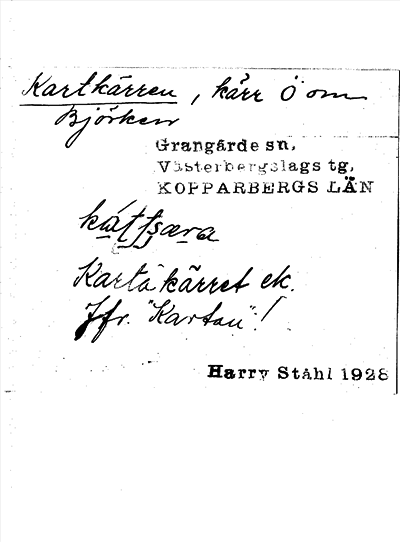 Kartkärren, kärr Ö om
Björken
Grangärde sn,
Västerbergslags tg,
KOPPARBERGS LÄN
Karta kärret ek.
Jfr. "Kartan"!
Harry Ståhl 1928